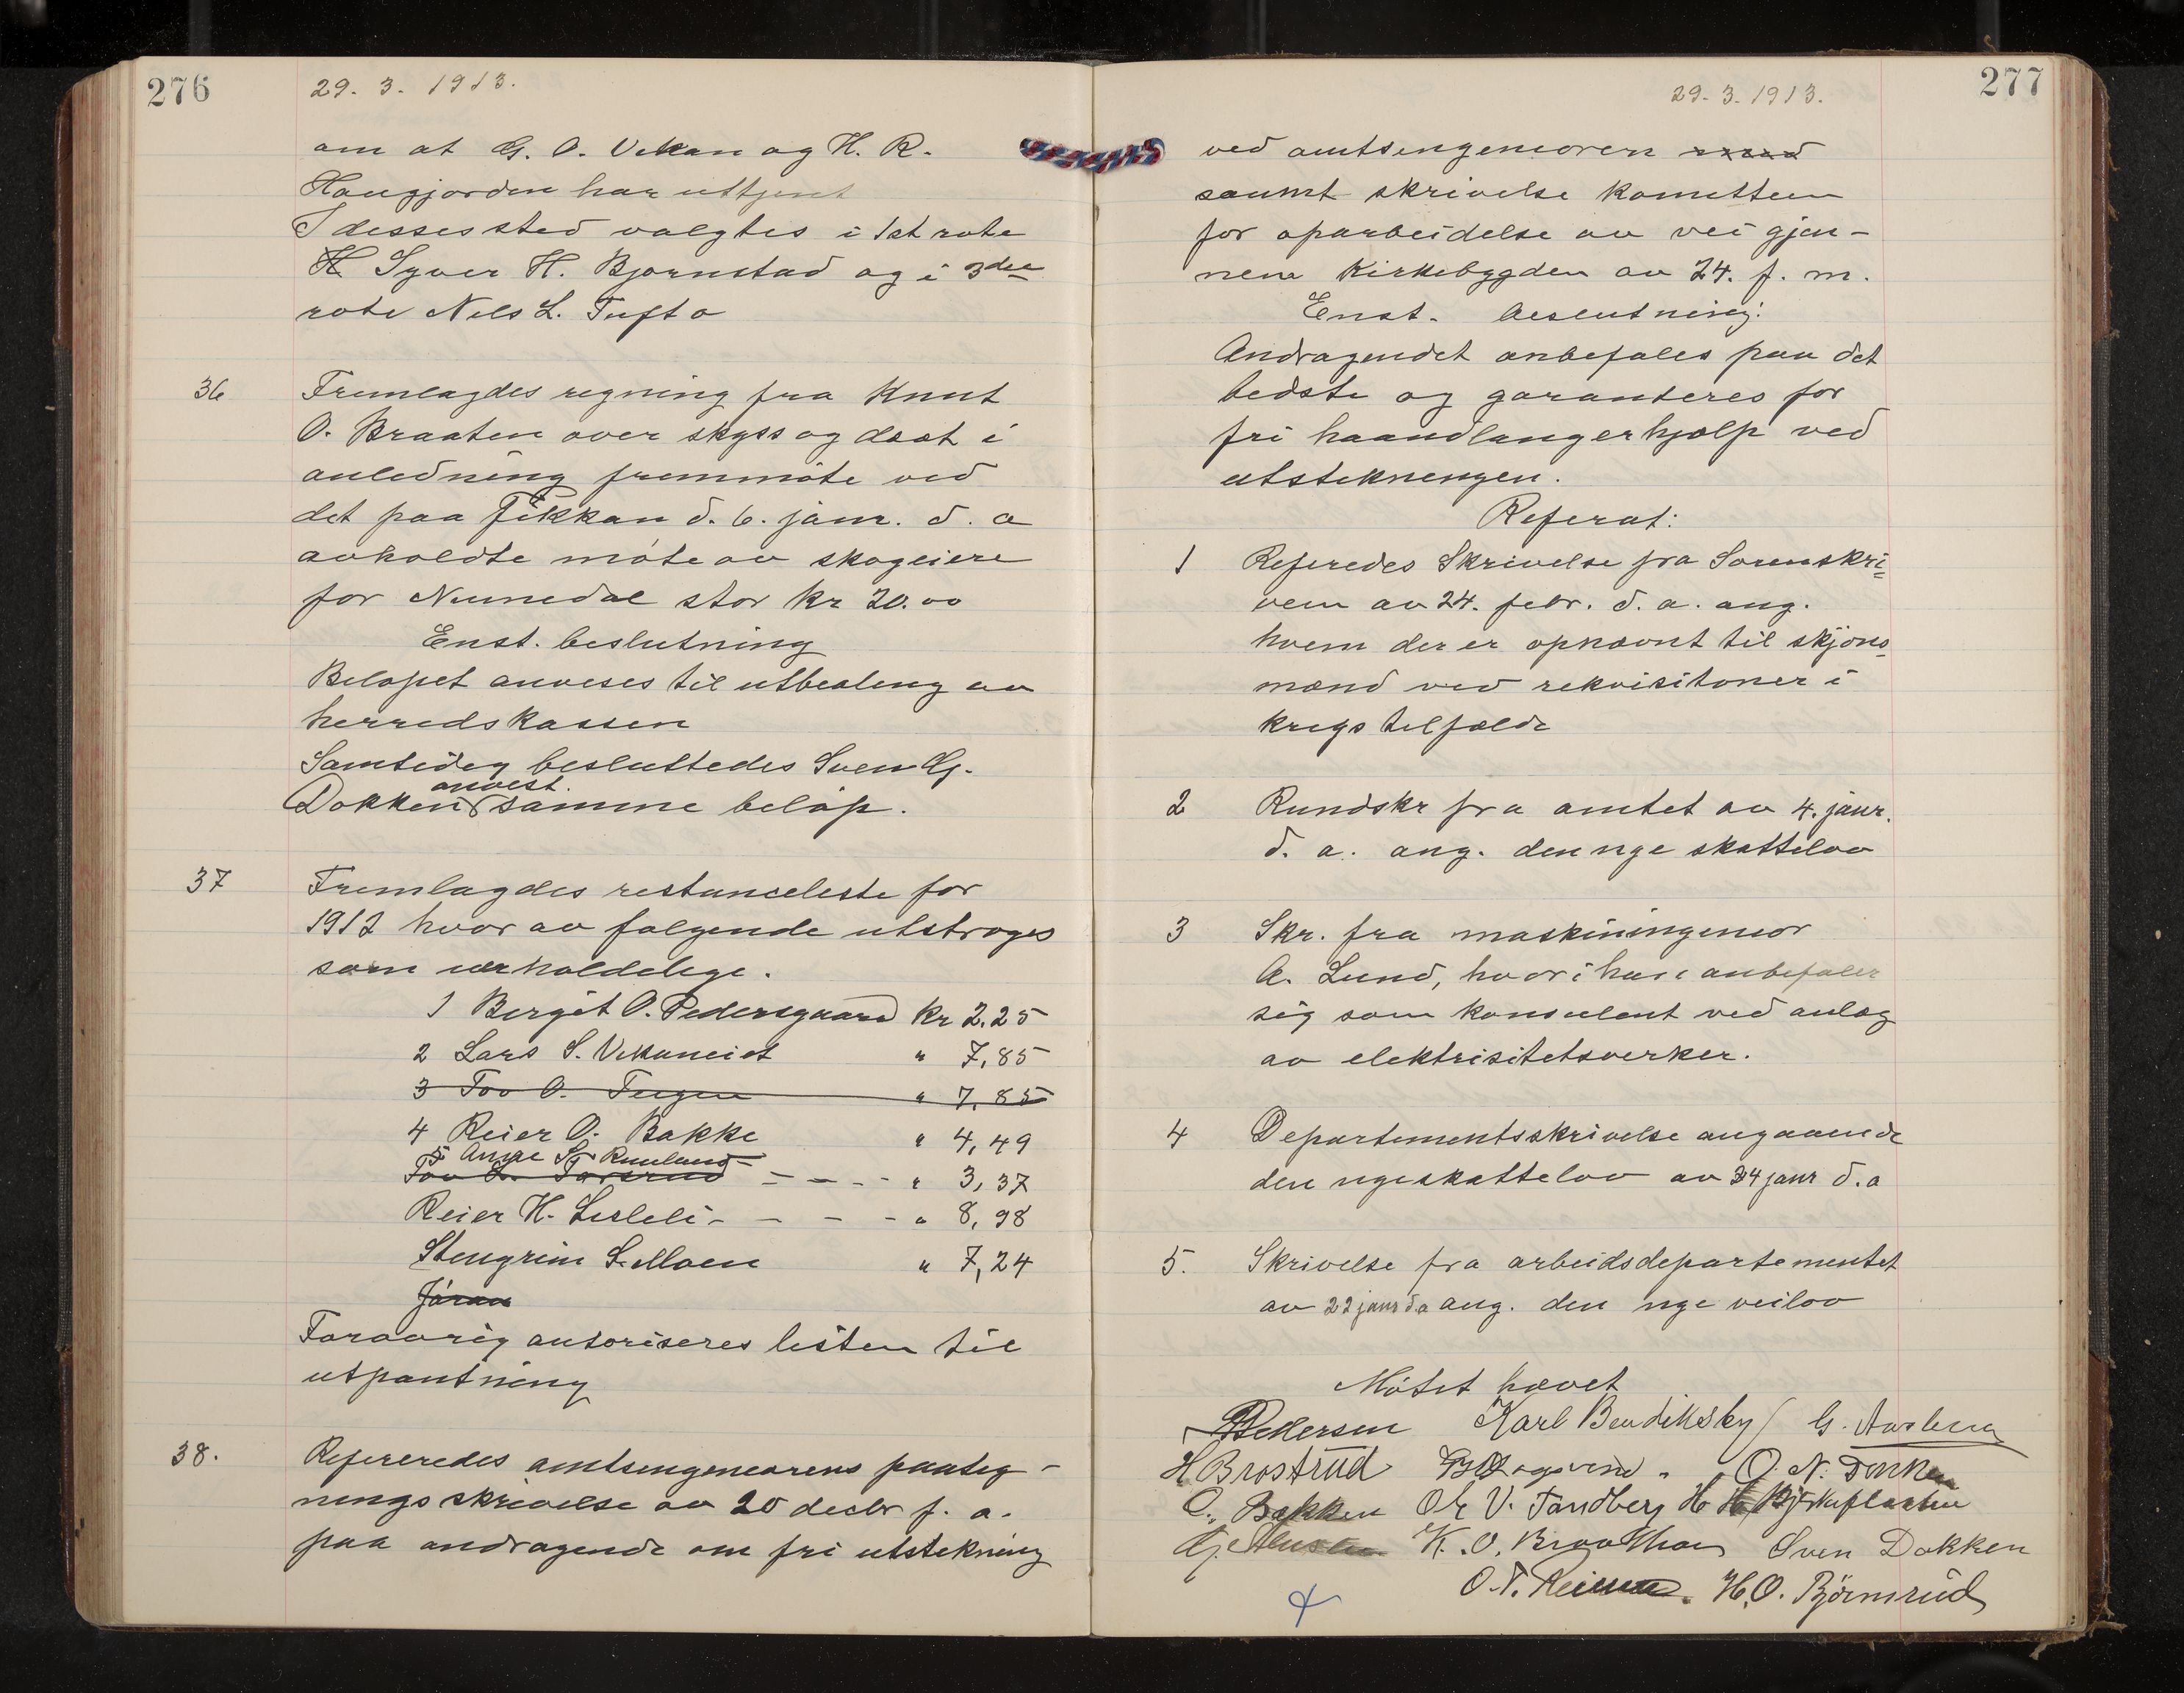 276
29. 3. 1913.
om at G. O. Vekan og H. R.
Haugjorden har uttjent
I desses sted valgtes i 1st rote
H Syver H. Bjørnstad og i 3die
rote Nels L. Tufto
36 Fremlagdes regning fra Knut
O. Braaten over skyss og diæt i
anledning fremmøte ved
det paa Fikkan d. 6. janr. d. a
avholdte møte av skogeiere
for Numedal stor kr 20.00
Enst. beslutning
Beløpet anvises til utbealing av
herredskassen
Samtidig besluttedes Sven G.
anvist.
Dokken samme beløp.
37 Fremlagdes restanceliste for
1912 hvor av følgende utstroges
som uerholdelige.
1 Bergit O. Pedersgaard kr 2.25
2 Lars S. Vekaneiet " 7,85
3 Tov O. Teigen " 7,85
4 Reier O. Bakke " 4,49
5 Anne S. Ruuland
Tov - - - - " 3,37
Reier H. Lisleli - - - - " 8,98
Stengrim S. Moen " 7,24
Jøran
Forøvrig autoriseres listen til
utpantning
38. Refereredes amtsingeniørens paateg-
nings skrivelse av 20 decbr f. a.
paa andragende om fri utstekning
277
29. 3. 1913.
ved amtsingeniøren
saumt skrivelse komitteen
for oparbeidelse av vei gjen-
nem Kirkebygden av 24. f. m.
Enst. beslutning:
Andragendet anbefales paa det
bedste og garanteres for
fri haandlangerhjælp ved
utstekningen.
Referat:
1 Referedes Skrivelse fra Sorenskri-
veren av 24. febr. d. a. ang.
hvem der er opnævnt til skjøns-
mænd ved rekvisitoner i
krigs tilfælde
2 Rundskr fra amtet av 4. janr.
d. a. ang. den nye skattelov
3 Skr. fra maskiningeniør
A. Lund, hvori han anbefaler
sig som konsulent ved anlæg
av elektrisitetsverker.
4 Departementsskrivelse angaaende
den nye skattelov av 24 janr d. a
5. Skrivelse fra arbeidsdepartementet
av 22 janr d. a ang. den nye veilov
Møtet hævet
Pedersen Karl Bendiksby G. Aaslena
H Brostrud O. N.
O. Bakken Ole V. Tandberg H H Bjørkeflaaten
K. O. Braathen Sven Dokken
O. T. H. O. Björnsrud